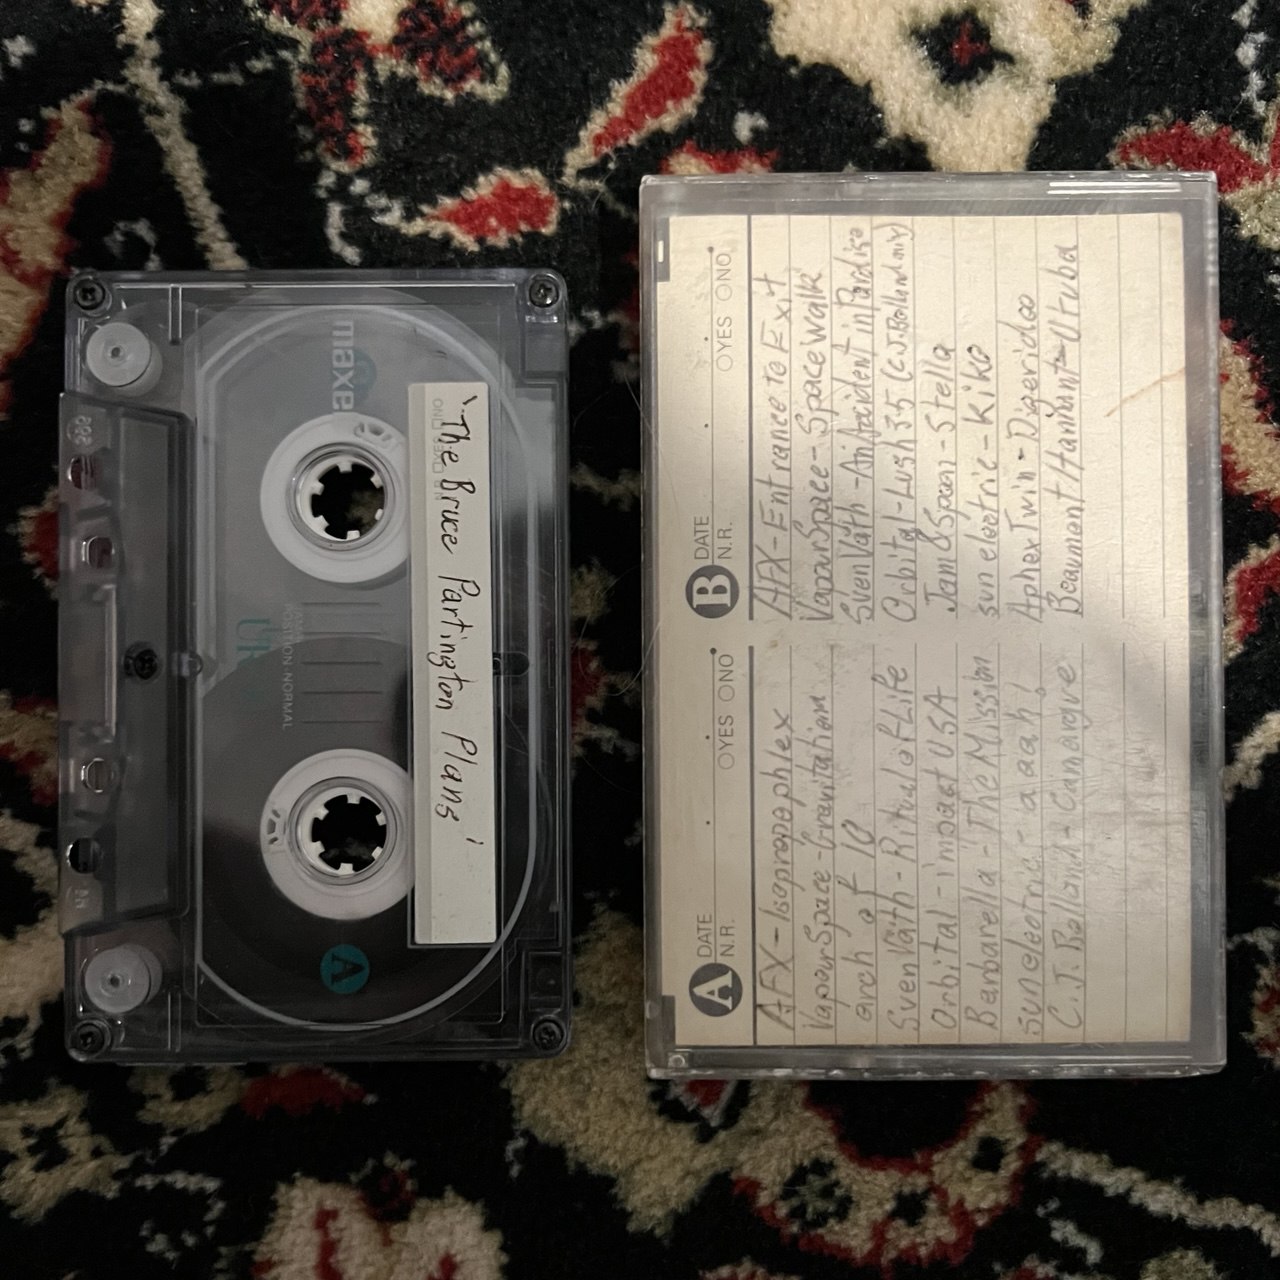 maxell
UR
POSITION NORMAL
A
'The Bruce Partington Plans'
B DATE
N.R. OYES ONO
AFX - Entrance to Exit
VapourSpace - SpaceWalk
Sven Väth - An Accident in Paradise
Orbital - Lush 3 5 (C.J. Bolland mix)
Jam & Spoon - Stella
sun electric - Kiko
Aphex Twin - Digeridoo
Beaumont Hannant - Utuba
A DATE
N.R. OYES ONO
AFX - Isopropophlex
VapourSpace - Gravitational
arch of 10
Sven Väth - Ritual of Life
Orbital - impact USA
Barbarella - The Mission
sun electric - aaah!
C.J. Bolland - Camargue